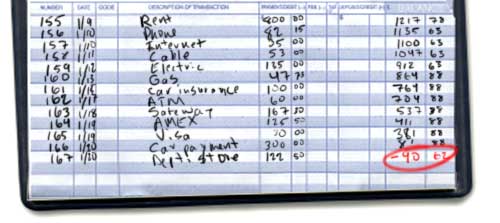 NUMBER DATE CODE DESCRIPTION OF TRANSACTION BALANCE
155 1/9 Rent 800 00 1217 78
156 1/10 Phone 82 15 1135 63
157 1/10 Internet 35 00 1100 63
158 1/11 Cable 53 00 1047 63
159 1/12 Electric 135 00 912 63
160 1/13 Gas 47 75 864 88
161 1/15 Car insurance 100 00 764 88
162 1/17 ATM 60 00 704 88
163 1/18 Safeway 167 50 537 88
164 1/19 AMEX 126 50 411 88
165 1/19 Visa 30 00 381 88
166 1/20 Car payment 300 00 81 88
167 1/20 Dept. store 122 50 -40 62